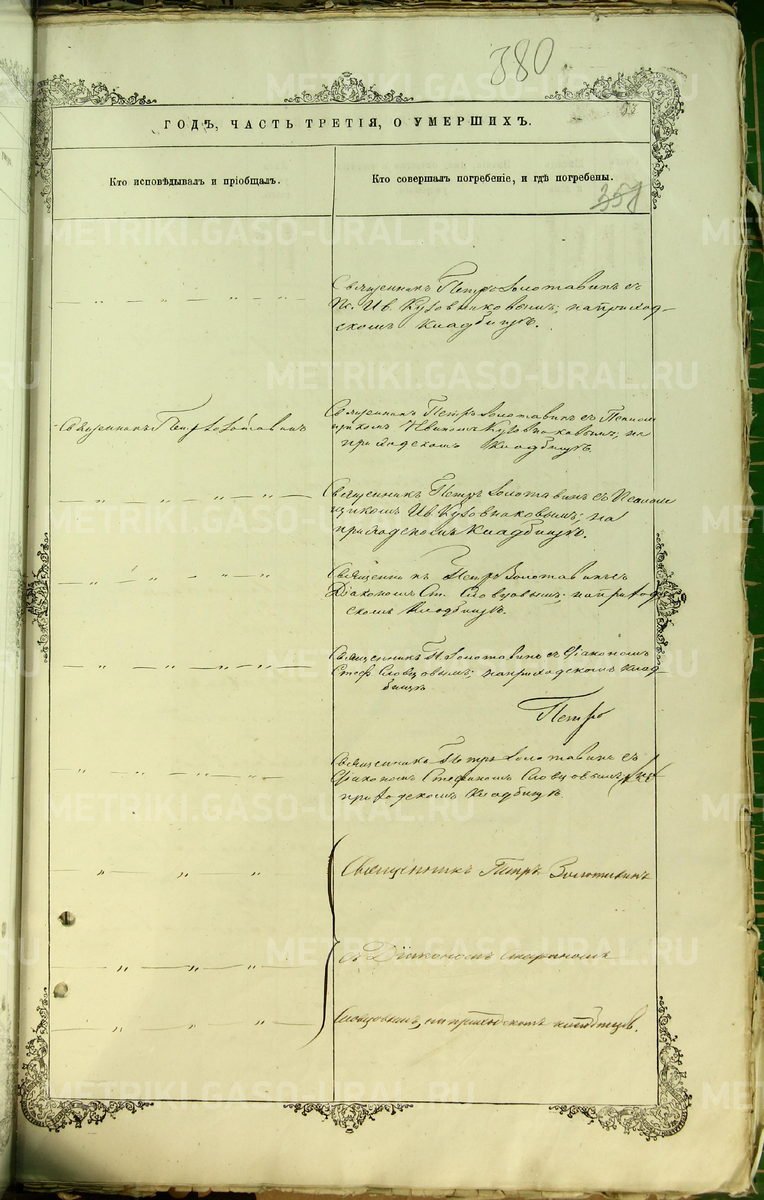 380
53
ГОДЪ, ЧАСТЬ ТРЕТІЯ, О УМЕРШИХЪ.
Кто исповѣдывалъ и пріобщалъ.
Кто совершалъ погребеніе, и гдѣ погребены.
351
Священникъ Петръ Золотавинъ съ
Пс. Ив. Кузовниковымъ; на приход-
скомъ кладбищѣ.
Священникъ Петръ Золотавинъ
Священникъ Петръ Золотавинъ съ Псалом
щикомъ Иваномъ Кузовниковымъ; на
приходскомъ кладбищѣ.
Священникъ Петръ Золотавинъ съ Псалом
щикомъ Ив. Кузовниковымъ; на
приходскомъ кладбищѣ.
Священникъ Петръ Золотавинъ съ
Діакономъ Ст. Словцовымъ; на приход
скомъ кладбищѣ.
Священникъ П. Золотавинъ съ Діакономъ
Стеф. Словцовымъ; на приходскомъ клад
бищѣ
Петръ
Священникъ Петръ Золотавинъ съ
Діакономъ Стефаномъ Словцовымъ; на
приходскомъ кладбищѣ.
Священникъ Петръ Золотавинъ
съ Діакономъ Стефаномъ
Словцовымъ, на приходскомъ кладбищѣ.
METRIKI.GASO-URAL.RU